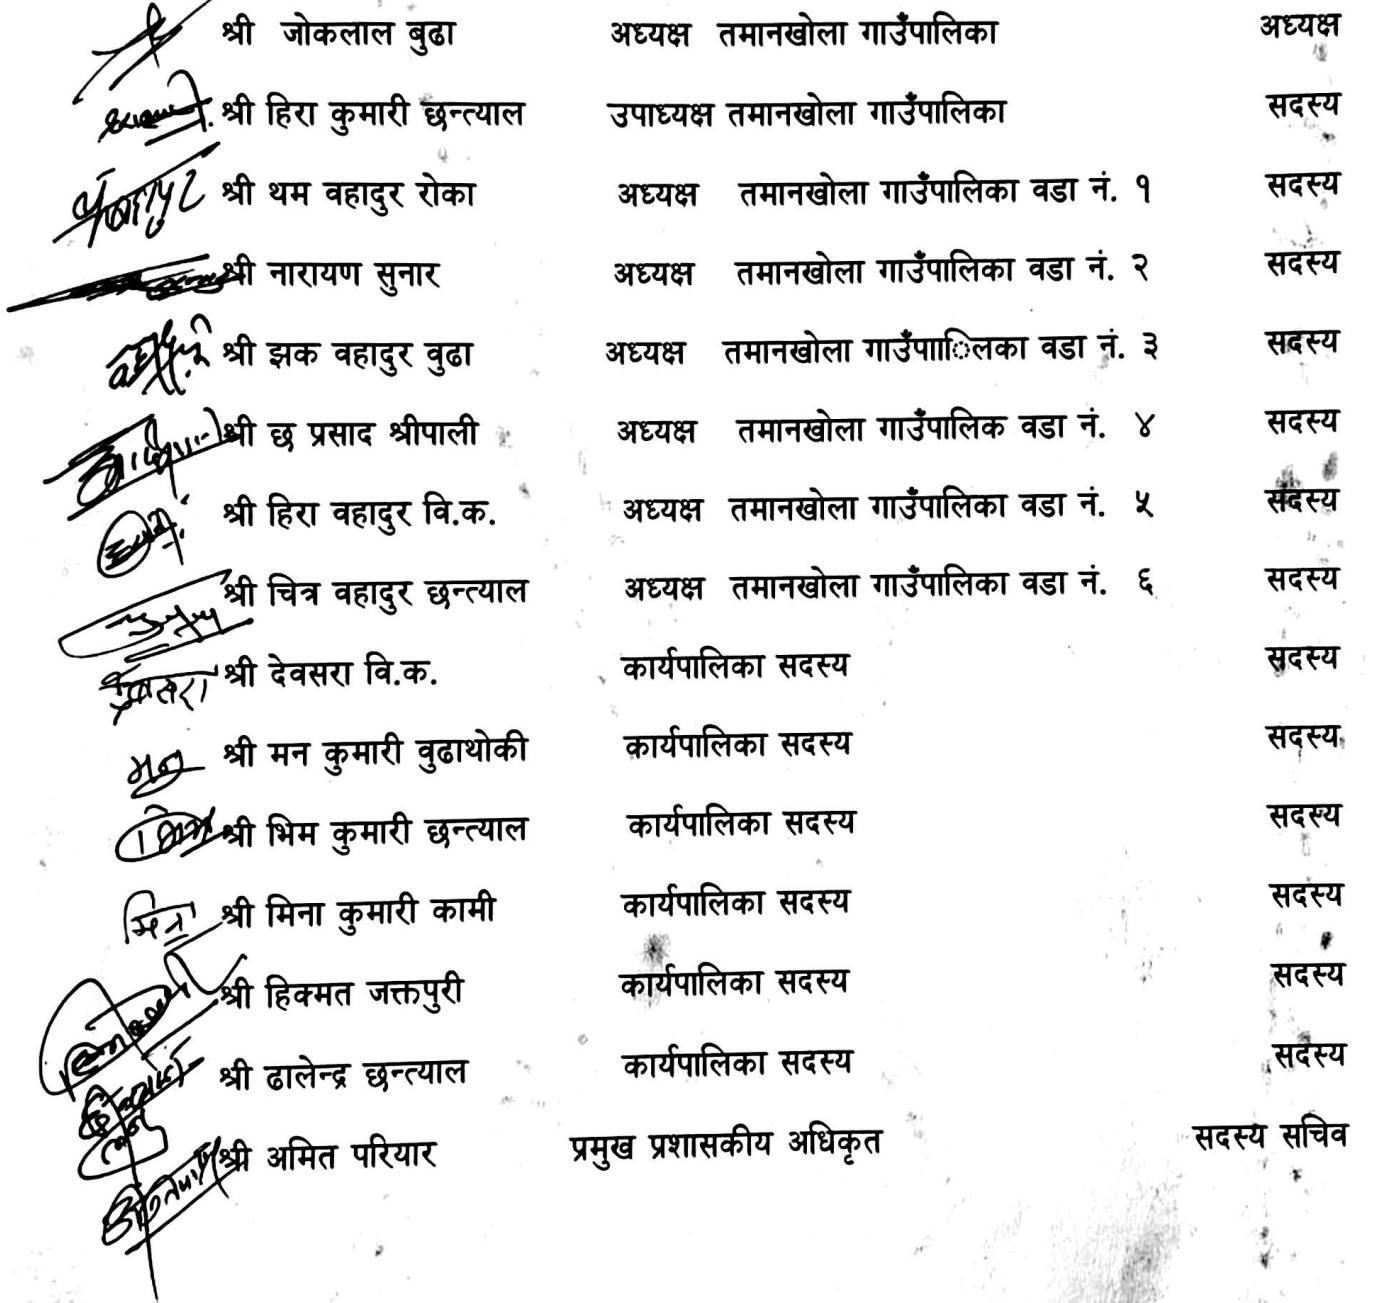 श्री जोकलाल बुढा अध्यक्ष तमानखोला गाउँपालिका अध्यक्ष
श्री हिरा कुमारी छन्त्याल उपाध्यक्ष तमानखोला गाउँपालिका सदस्य
श्री थम वहादुर रोका अध्यक्ष तमानखोला गाउँपालिका वडा नं. १ सदस्य
श्री नारायण सुनार अध्यक्ष तमानखोला गाउँपालिका वडा नं. २ सदस्य
श्री झक वहादुर वुढा अध्यक्ष तमानखोला गाउँपााि​लका वडा नं. ३ सदस्य
श्री छ प्रसाद श्रीपाली अध्यक्ष तमानखोला गाउँपालिक वडा नं. ४ सदस्य
श्री हिरा वहादुर वि.क. अध्यक्ष तमानखोला गाउँपालिका वडा नं. ५ सदस्य
श्री चित्र वहादुर छन्त्याल अध्यक्ष तमानखोला गाउँपालिका वडा नं. ६ सदस्य
श्री देवसरा वि.क. कार्यपालिका सदस्य सदस्य
मन श्री मन कुमारी वुढाथोकी कार्यपालिका सदस्य सदस्य
श्री भिम कुमारी छन्त्याल कार्यपालिका सदस्य सदस्य
श्री मिना कुमारी कामी कार्यपालिका सदस्य सदस्य
श्री हिक्मत जक्तपुरी कार्यपालिका सदस्य सदस्य
श्री ढालेन्द्र छन्त्याल कार्यपालिका सदस्य सदस्य
श्री अमित परियार प्रमुख प्रशासकीय अधिकृत सदस्य सचिव